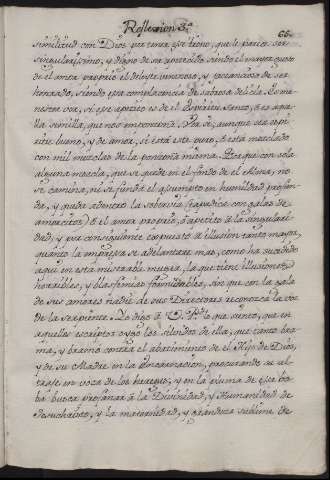 Reflexion 3ª
66
similitud con Dios por tener ese trono, que le parece ser
singularissimo, y digno de un apetecido siendo el mayor gusto
de el amor proprio el deleite venenoso, y
honrado, siendo esta complacencia de sobervia de ella. Es me-
nester ver, si ese apetito es de el Espiritu Santo, ò es aque-
lla semilla, que nos Por si, aunque sea espi-
ritu bueno, y de amor, si està este puro, ò està mezclado
con mil mezclas de la ponzoña misma. Porque con sola
alguna mezcla, que se quede en el fondo de el Alma, no
se camina, ni se funda el assumpto en humildad profun-
da, y queda adentro la sobervia (tapadica con galas de
amorcitos) ò el amor proprio, ò apetito à la singulari-
dad, y por consiguiente expuesto à illusion tanto mayor,
quanto la empressa se adelantare mas, como ha sucedido
aqui en esta miserable muger, la que tiene illusiones
horribles, y blasfemias formidables, sin que con la gala
de sus amores nadie de sus Directores reconozca la voz
de la serpiente. Yo digo à V. lo que siento, que en
aquellos escriptos oygo los silvidos de ella, que tanto bra-
ma, y bramò contra el abatimiento de el Hijo de Dios,
y de su Madre en la Encarnacion, procurando su ul-
traje en voca de los hereges, y en la pluma de esta bo-
ba busca profanar à la Divinidad, y Humanidad de
Jesuchristo, y la maternidad, y grandeza sublime de